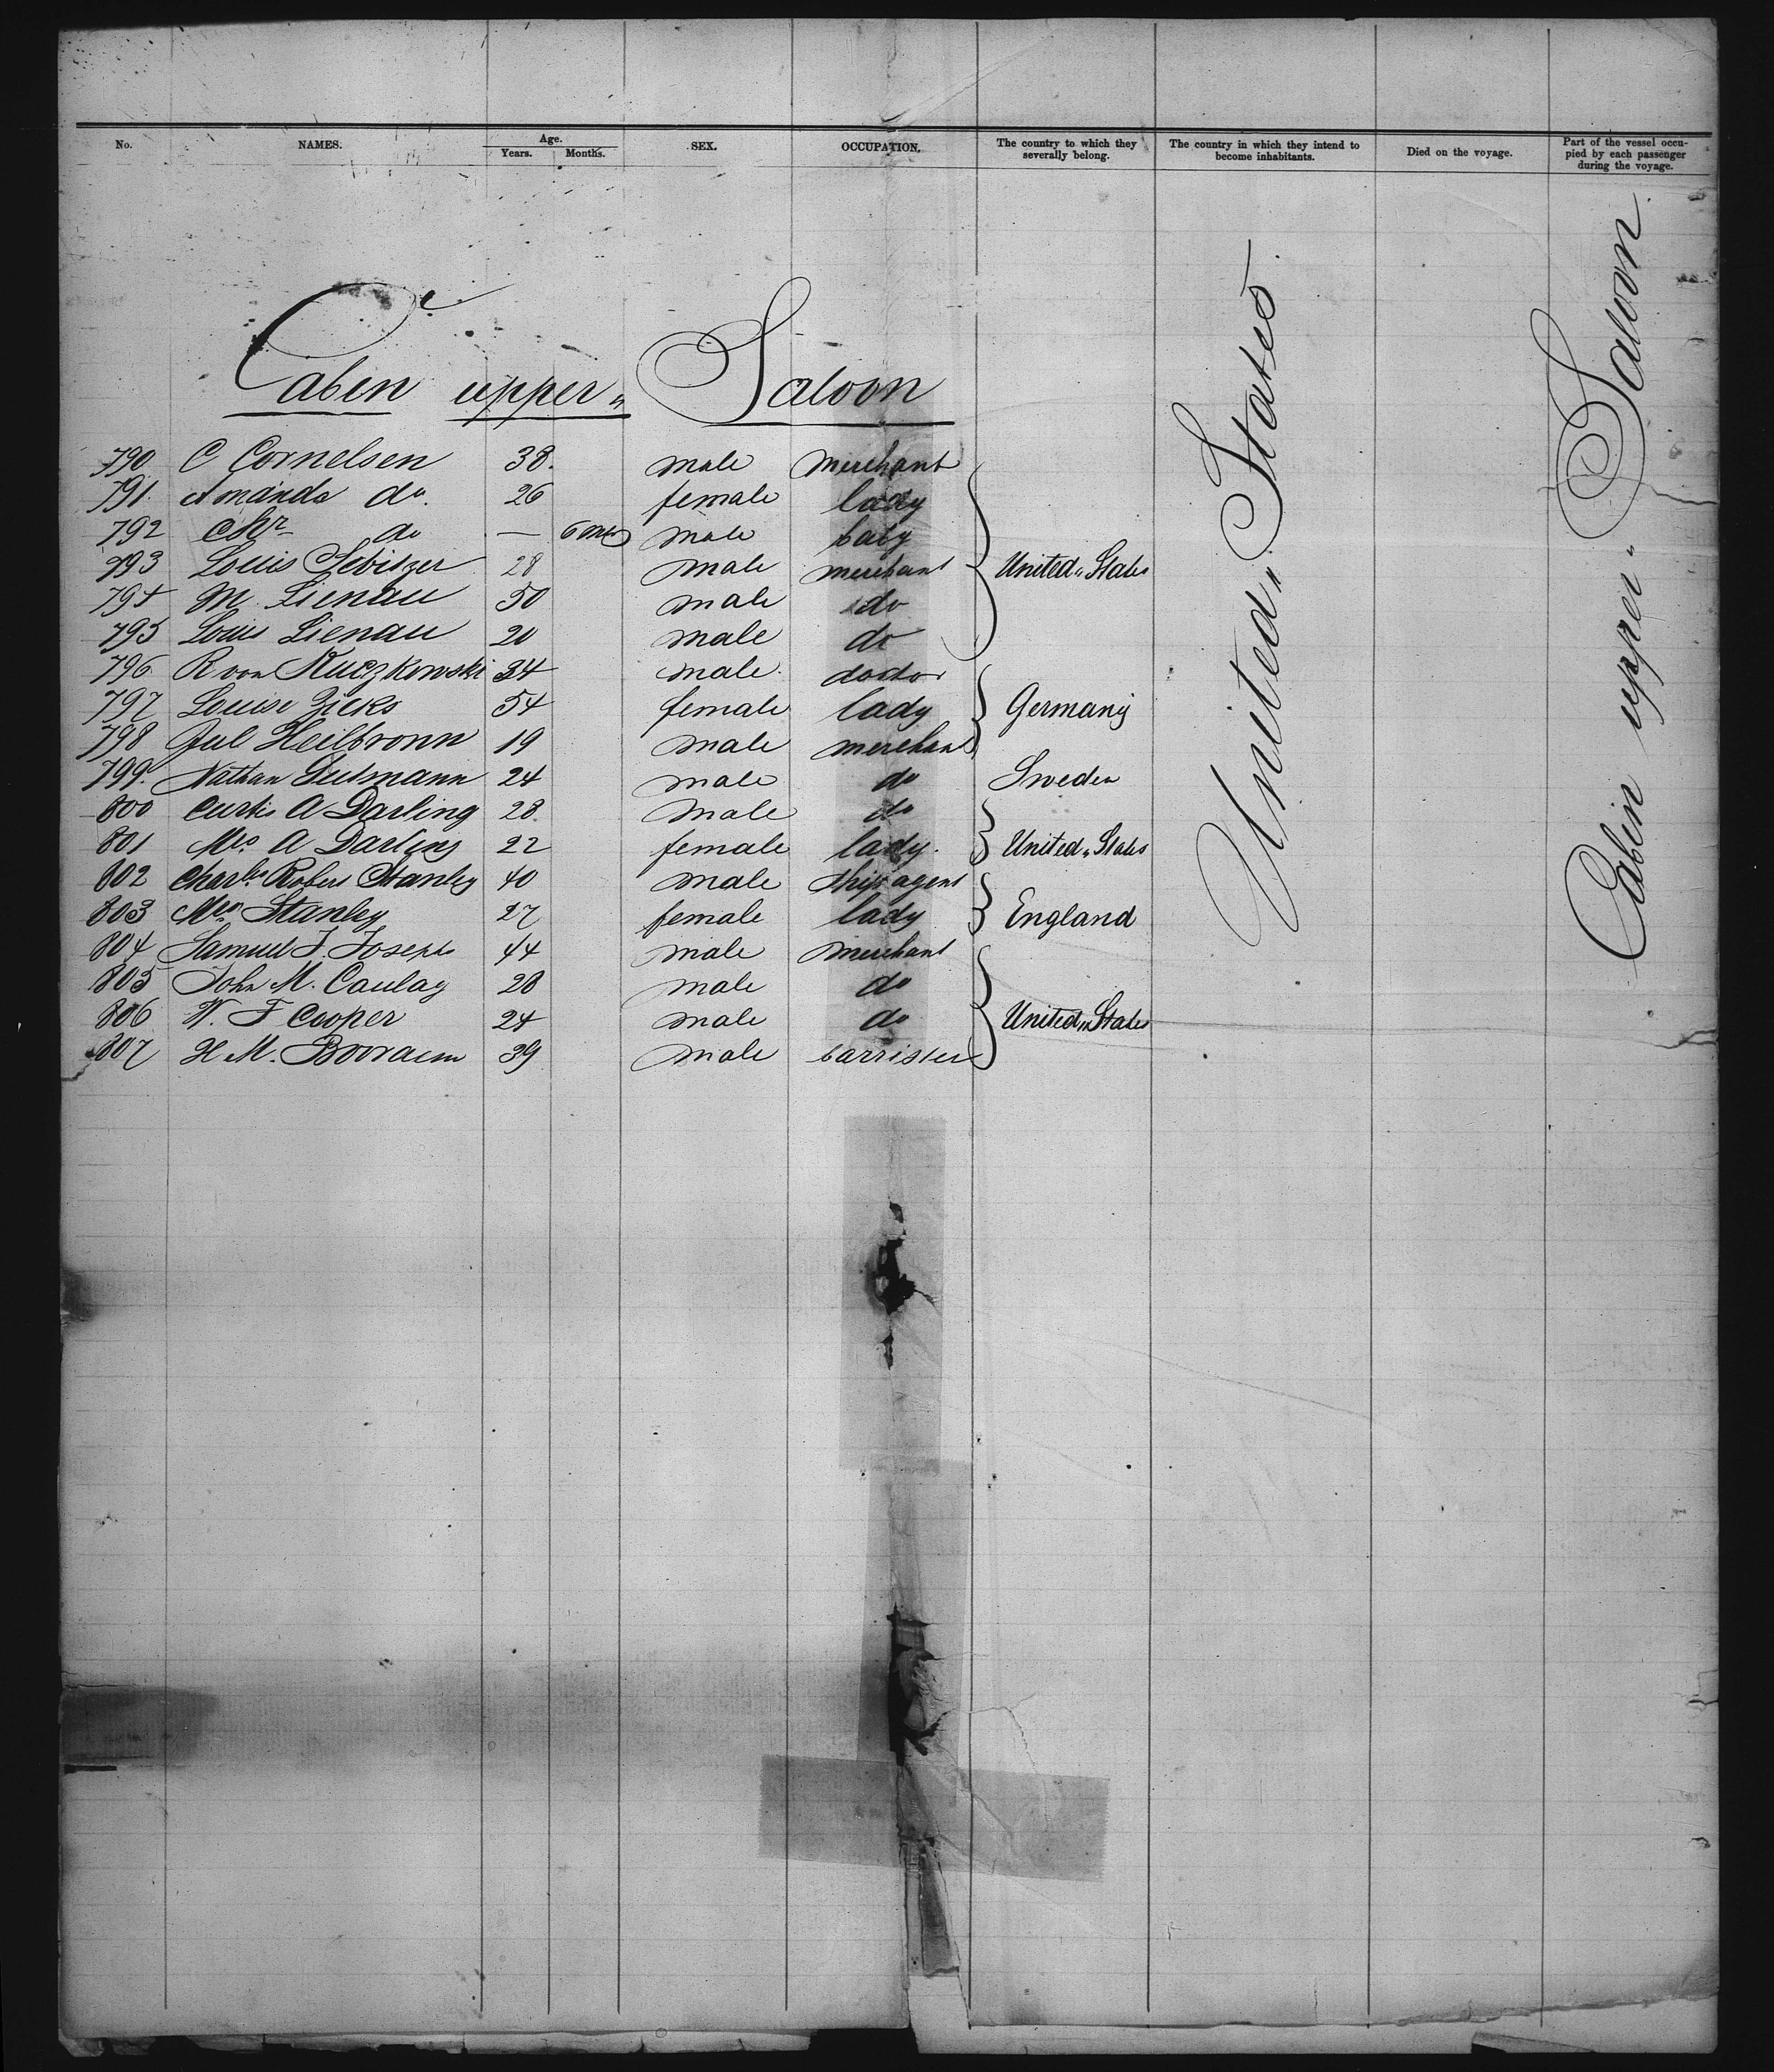 No. NAMES. Age. Years. Months. SEX. OCCUPATION. The country to which they severally belong. The country in which they intend to become inhabitants. Died on the voyage. Part of the vessel occupied by each passenger during the voyage.
Cabin upper Saloon
790 C Cornelsen 38. male merchant
791. Amanda do. 26 female lady
792 Chr do — 6 mts male baby
793 Louis 28 male merchant United States
794 M. Lienau 50 male do
795 Louis Lienau 20 male do
796 R von Kuczkowski 34 male doctor
797 Louise Zicks 54 female lady Germany
798 Jul Heilbronn 19 male merchant
799. Nathan 24 male do Sweden
800 Curtis A Darling 28. male do
801 Mrs A Darling 22 female lady. United States
802 Charles Robert Stanley 40 male ship agent
803 Mrs Stanley 27 female lady England
804 Samuel J. Joseph 44 male merchant
805 John M. Caulay 28 male do
806 W. F Cooper 24 male do United States
807 H M. Booraem 39 male barrister
United States.
Cabin upper Saloon.